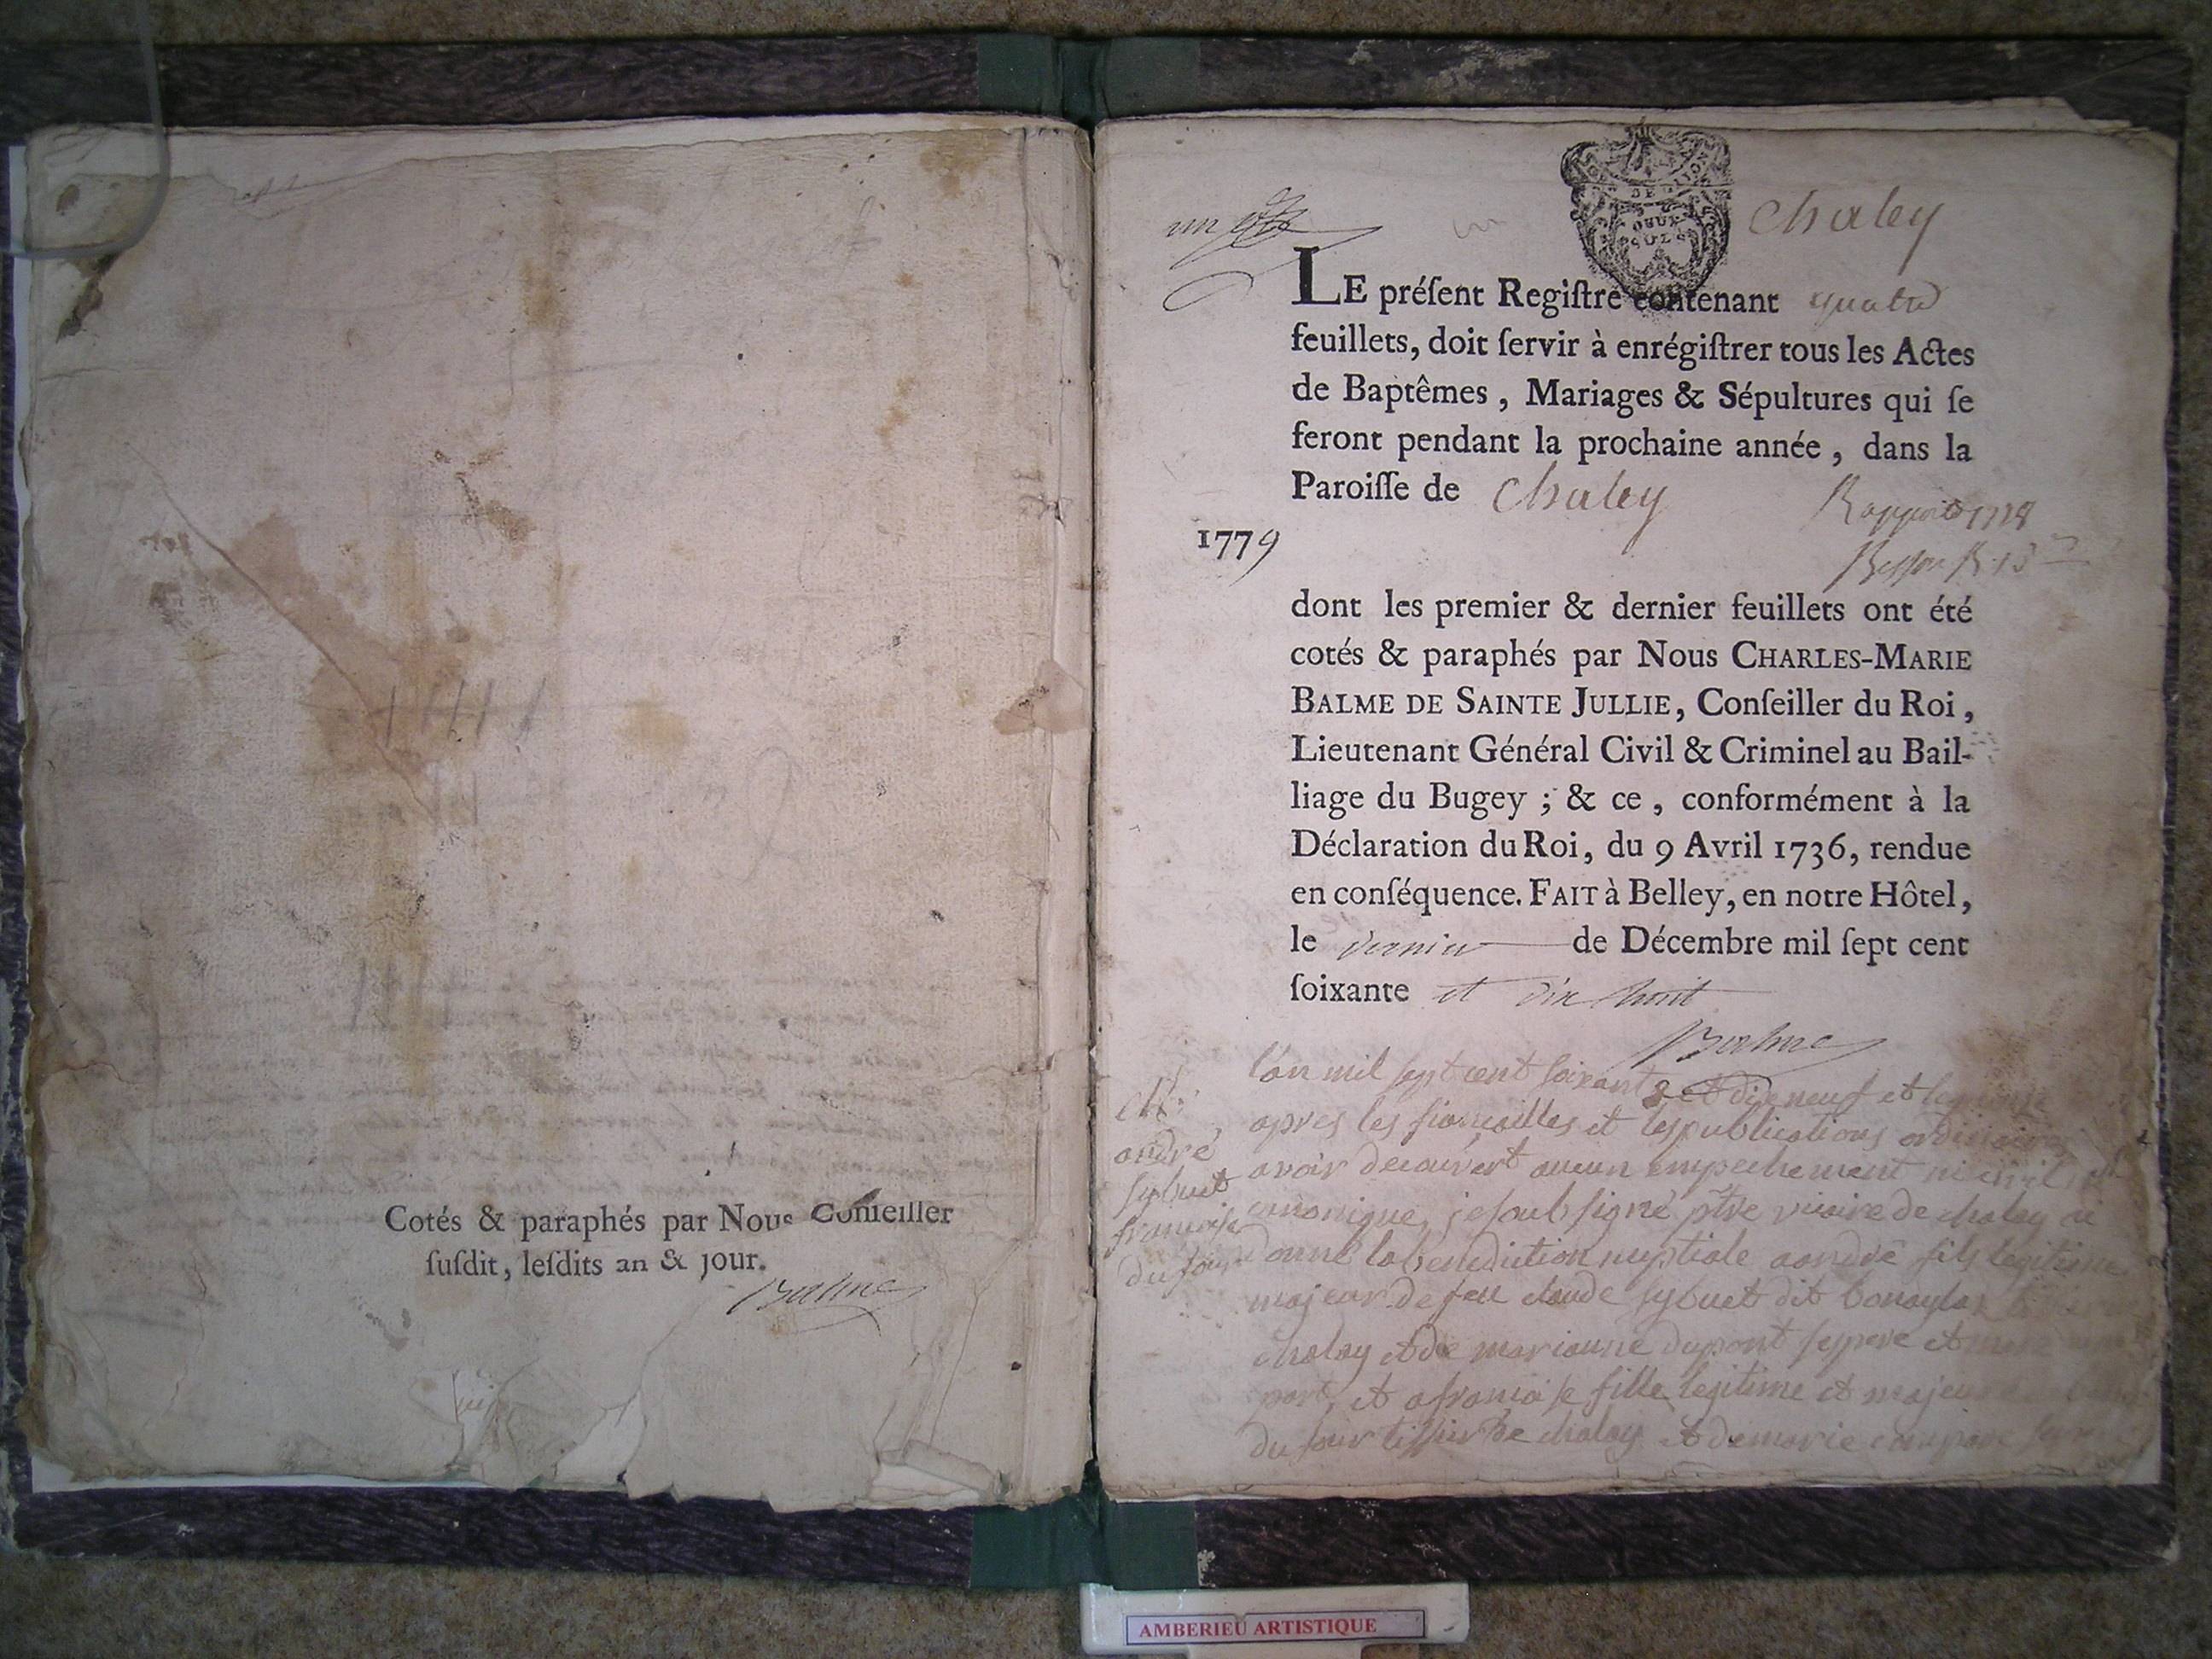 Cotés & paraphés par Nous Conseiller
suſdit, leſdits an & jour.
Balme
un
DE LYON
DEUX
SOLS
Chaley
LE préſent Regiſtre contenant quatre
feuillets, doit ſervir à enrégiſtrer tous les Actes
de Baptêmes, Mariages & Sépultures qui ſe
feront pendant la prochaine année, dans la
Paroiſſe de Chaley
Rapporté 1778
1779
dont les premier & dernier feuillets ont été
cotés & paraphés par Nous CHARLES-MARIE
BALME DE SAINTE JULLIE, Conſeiller du Roi,
Lieutenant Général Civil & Criminel au Bail-
liage du Bugey ; & ce, conformément à la
Déclaration du Roi, du 9 Avril 1736, rendue
en conſéquence. FAIT à Belley, en notre Hôtel,
le dernier de Décembre mil ſept cent
ſoixante et dix huit
Balme
andré
sybuet
françoise
dufour
l'an mil sept cent soixante et dix neuf et le
apres les fiançailles et les publications ordinaires
avoir decouvert aucun empechement ni civil ni
canonique, je soubsigné ptre vicaire de chaley ai
donné la benediction nuptiale a andré fils legitime
majeur de feu claude sybuet dit
chaley et de marianne dupont
part, et a françoise fille legitime et majeure
du four tissier de chaley et de marie
AMBERIEU ARTISTIQUE